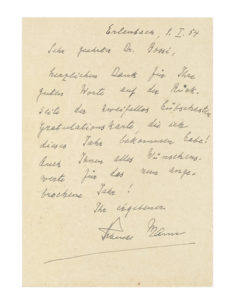 Erlenbach, 1. I. 54
Sehr geehrter Dr.
herzlichen Dank für Ihre
guten Worte auf der Rück-
seite der zweifellos hübschesten
Gratulationskarte, die ich
dieses Jahr bekommen habe!
Auch Ihnen alles Wünschens-
werte für das neu ange-
brochene Jahr!
Ihr ergebener
Thomas Mann